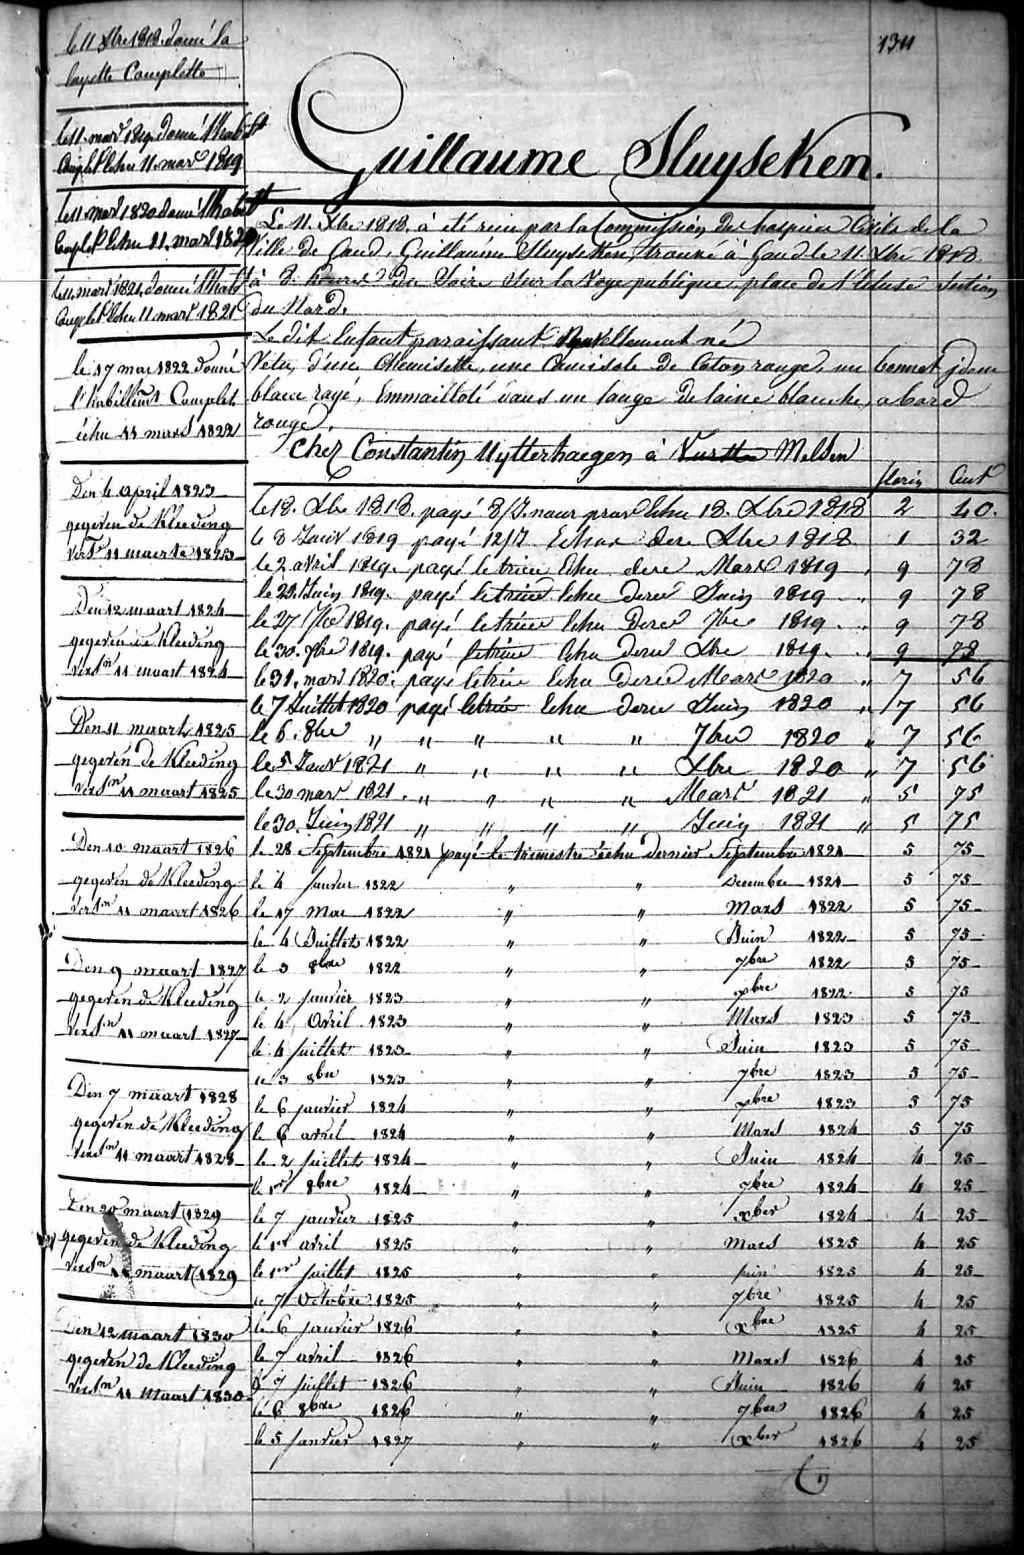 le 11 Xbre 1818 donné la
layette Complette
1311
Guillaume Sluyseken.
le 11 mars 1819 donné l'habt
Complet Echu 11 mars 1819
le 11 mars 1820 donné l'habt
Complet Echu 11 mars 1820
le 11 mars 1821 donné l'habt
Complet Echu 11 mars 1821
le 17 mai 1822 donné
l'habillemt Complet
échu 11 mars 1822
Den 6 april 1823
gegeven de Kleeding
versn 11 maerte 1823
Den 12 maart 1824
gegeven de Kleeding
versn 11 maart 1824
Den 11 maart 1825
gegeven de Kleeding
versn 11 maart 1825
Den 10 maart 1826
gegeven de Kleeding
versn 11 maart 1826
Den 9 maart 1827
gegeven de Kleeding
versn 11 maart 1827
Den 7 maart 1828
gegeven de Kleeding
versn 11 maart 1828
Den 20 maart 1829
gegeven de Kleeding
versn 11 maart 1829
Den 12 maart 1830
gegeven de Kleeding
versn 11 maart 1830
Le 11. Xbre 1818. à été reçu par la Commission des hospices Civils de la
Ville de Gand, Guillaume Sluyseken, trouvé à Gand le 11. Xbre 1818.
à 8. heures du Soire Sur la Voye publique, place de l'Ecluse Section
du Nord.
Le dit Enfant paraissant Nouvellement né
Vetu, d'une Chemisette, une Camisole de Coton rouge, un bonnet jdem
blanc rayé, Emmailloté dans un lange de laine blanche, a bord
rouge.
Chez Constantin Uytterhaegen à Melden
florin Cent
le 18. Xbre 1818. payé 8/7 Echu 18. Xbre 1818 2 40.
le 8 Janv 1819 payé 12/7 Echue dere Xbre 1818 1 32
le 2 avril 1819. payé letrieu Echu dere Mars 1819 9 78
le 22 Juin 1819. payé letrieu Echu dere Juin 1819 9 78
le 27 7bre 1819. payé letrieu Echu dere 7bre 1819 9 78
le 30. Xbre 1819. payé letrieu Echu dere Xbre 1819. 9 78
le 31. mars 1820. payé letrieu Echu dere Mars 1820 " 7 56
le 7 Juillet 1820 payé letrieu Echu dere Juin 1820 " 7 56
le 6. 8bre " " " " " 7bre 1820 " 7 56
le 5 Janv 1821 " " " " Xbre 1820 " 7 56
le 30 mars 1821. " " " " Mars 1821 " 5 75
le 30. Juin 1821 " " " " Juin 1821 " 5 75
le 28 Septembre 1821 payé le trimestre échu dernier Septembre 1821 5 75
le 4 janvier 1822 " " Decembre 1821 5 75
le 17 Mai 1822 " " Mars 1822 5 75
le 4 Juillet 1822 " " Juin 1822 5 75
le 3 8bre 1822 " " 7bre 1822 5 75
le 2 janvier 1823 " " xbre 1822 5 75
le 4 Avril 1823 " " Mars 1823 5 75
le 4 juillet 1823 " " Juin 1823 5 75
le 3 8bre 1823 " " 7bre 1823 5 75
le 6 janvier 1824 " " xbre 1823 5 75
le 6 avril 1824 " " Mars 1824 5 75
le 2 juillet 1824 " " Juin 1824 4 25
le 1er 8bre 1824 " " 7bre 1824 4 25
le 7 janvier 1825 " " xber 1824 4 25
le 1er avril 1825 " " Mars 1825 4 25
le 1er juillet 1825 " " juin 1825 4 25
le 7 Octobre 1825 " " 7bre 1825 4 25
le 6 janvier 1826 " " xbre 1825 4 25
le 7 avril 1826 " " Mars 1826 4 25
le 7 juillet 1826 " " Juin 1826 4 25
le 6 8bre 1826 " " 7bre 1826 4 25
le 5 janvier 1827 " " xber 1826 4 25